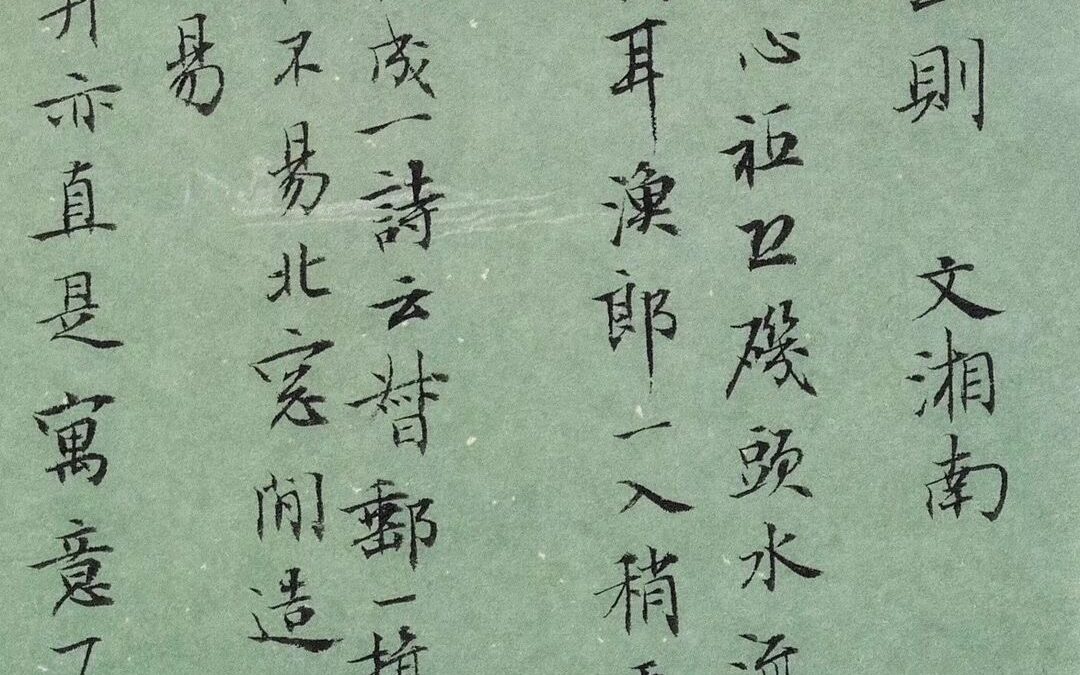 則 文湘南
心祖卫磯頭水流
耳漁郎一入稍
成一詩云督郵一
不易北窓閒造
易
亦直是寓意了